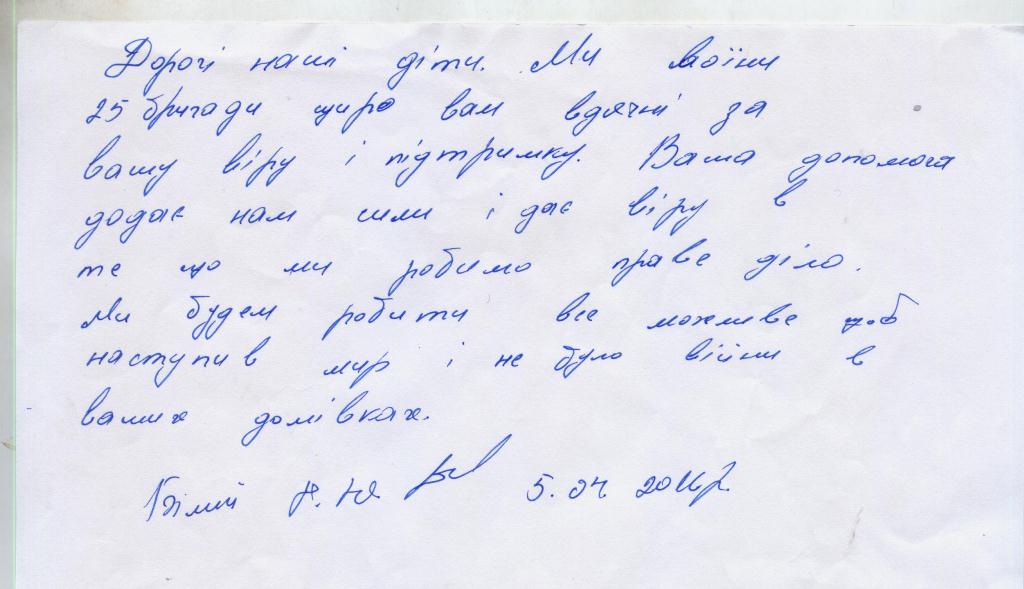 Дорогі наші діти. Ми воїни
25 бригади щиро вам вдячні за
вашу віру і підтримку. Ваша допомога
додає нам сили і дає віру в
те що ми робимо праве діло.
Ми будем робити все можливе щоб
наступив мир і не було війни в
ваших домівках.
Білий 5.04.2016р.